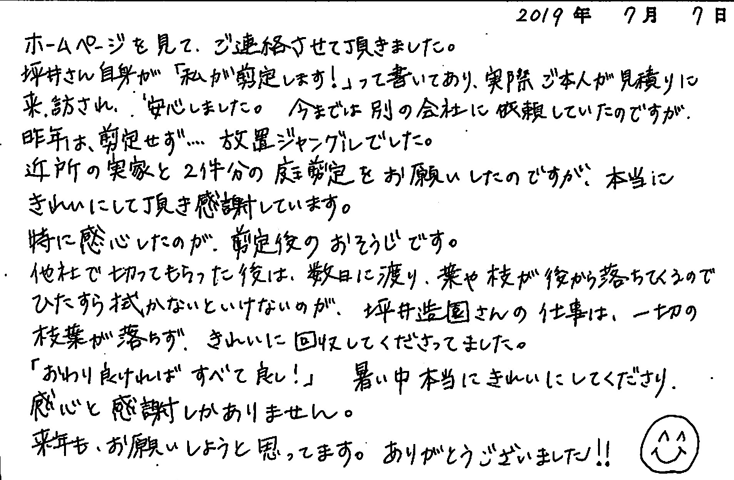 2019年 7月 7日
ホームページを見て、ご連絡させて頂きました。
坪井さん自身が「私が剪定します!」って書いてあり、実際ご本人が見積りに
来訪され、安心しました。 今までは別の会社に依頼していたのですが、
昨年は、剪定せず… 放置ジャングルでした。
近所の実家と2件分の庭剪定をお願いしたのですが、本当に
きれいにして頂き感謝しています。
特に感心したのが、剪定後のおそうじです。
他社で切ってもらった後は、数日に渡り、葉や枝が後から落ちてくるので
ひたすら拭かないといけないのが、坪井造園さんの仕事は、一切の
枝葉が落ちず、きれいに回収してくださってました。
「おわり良ければすべて良し!」 暑い中本当にきれいにしてくださり、
感心と感謝しかありません。
来年も、お願いしようと思ってます。ありがとうございました!!